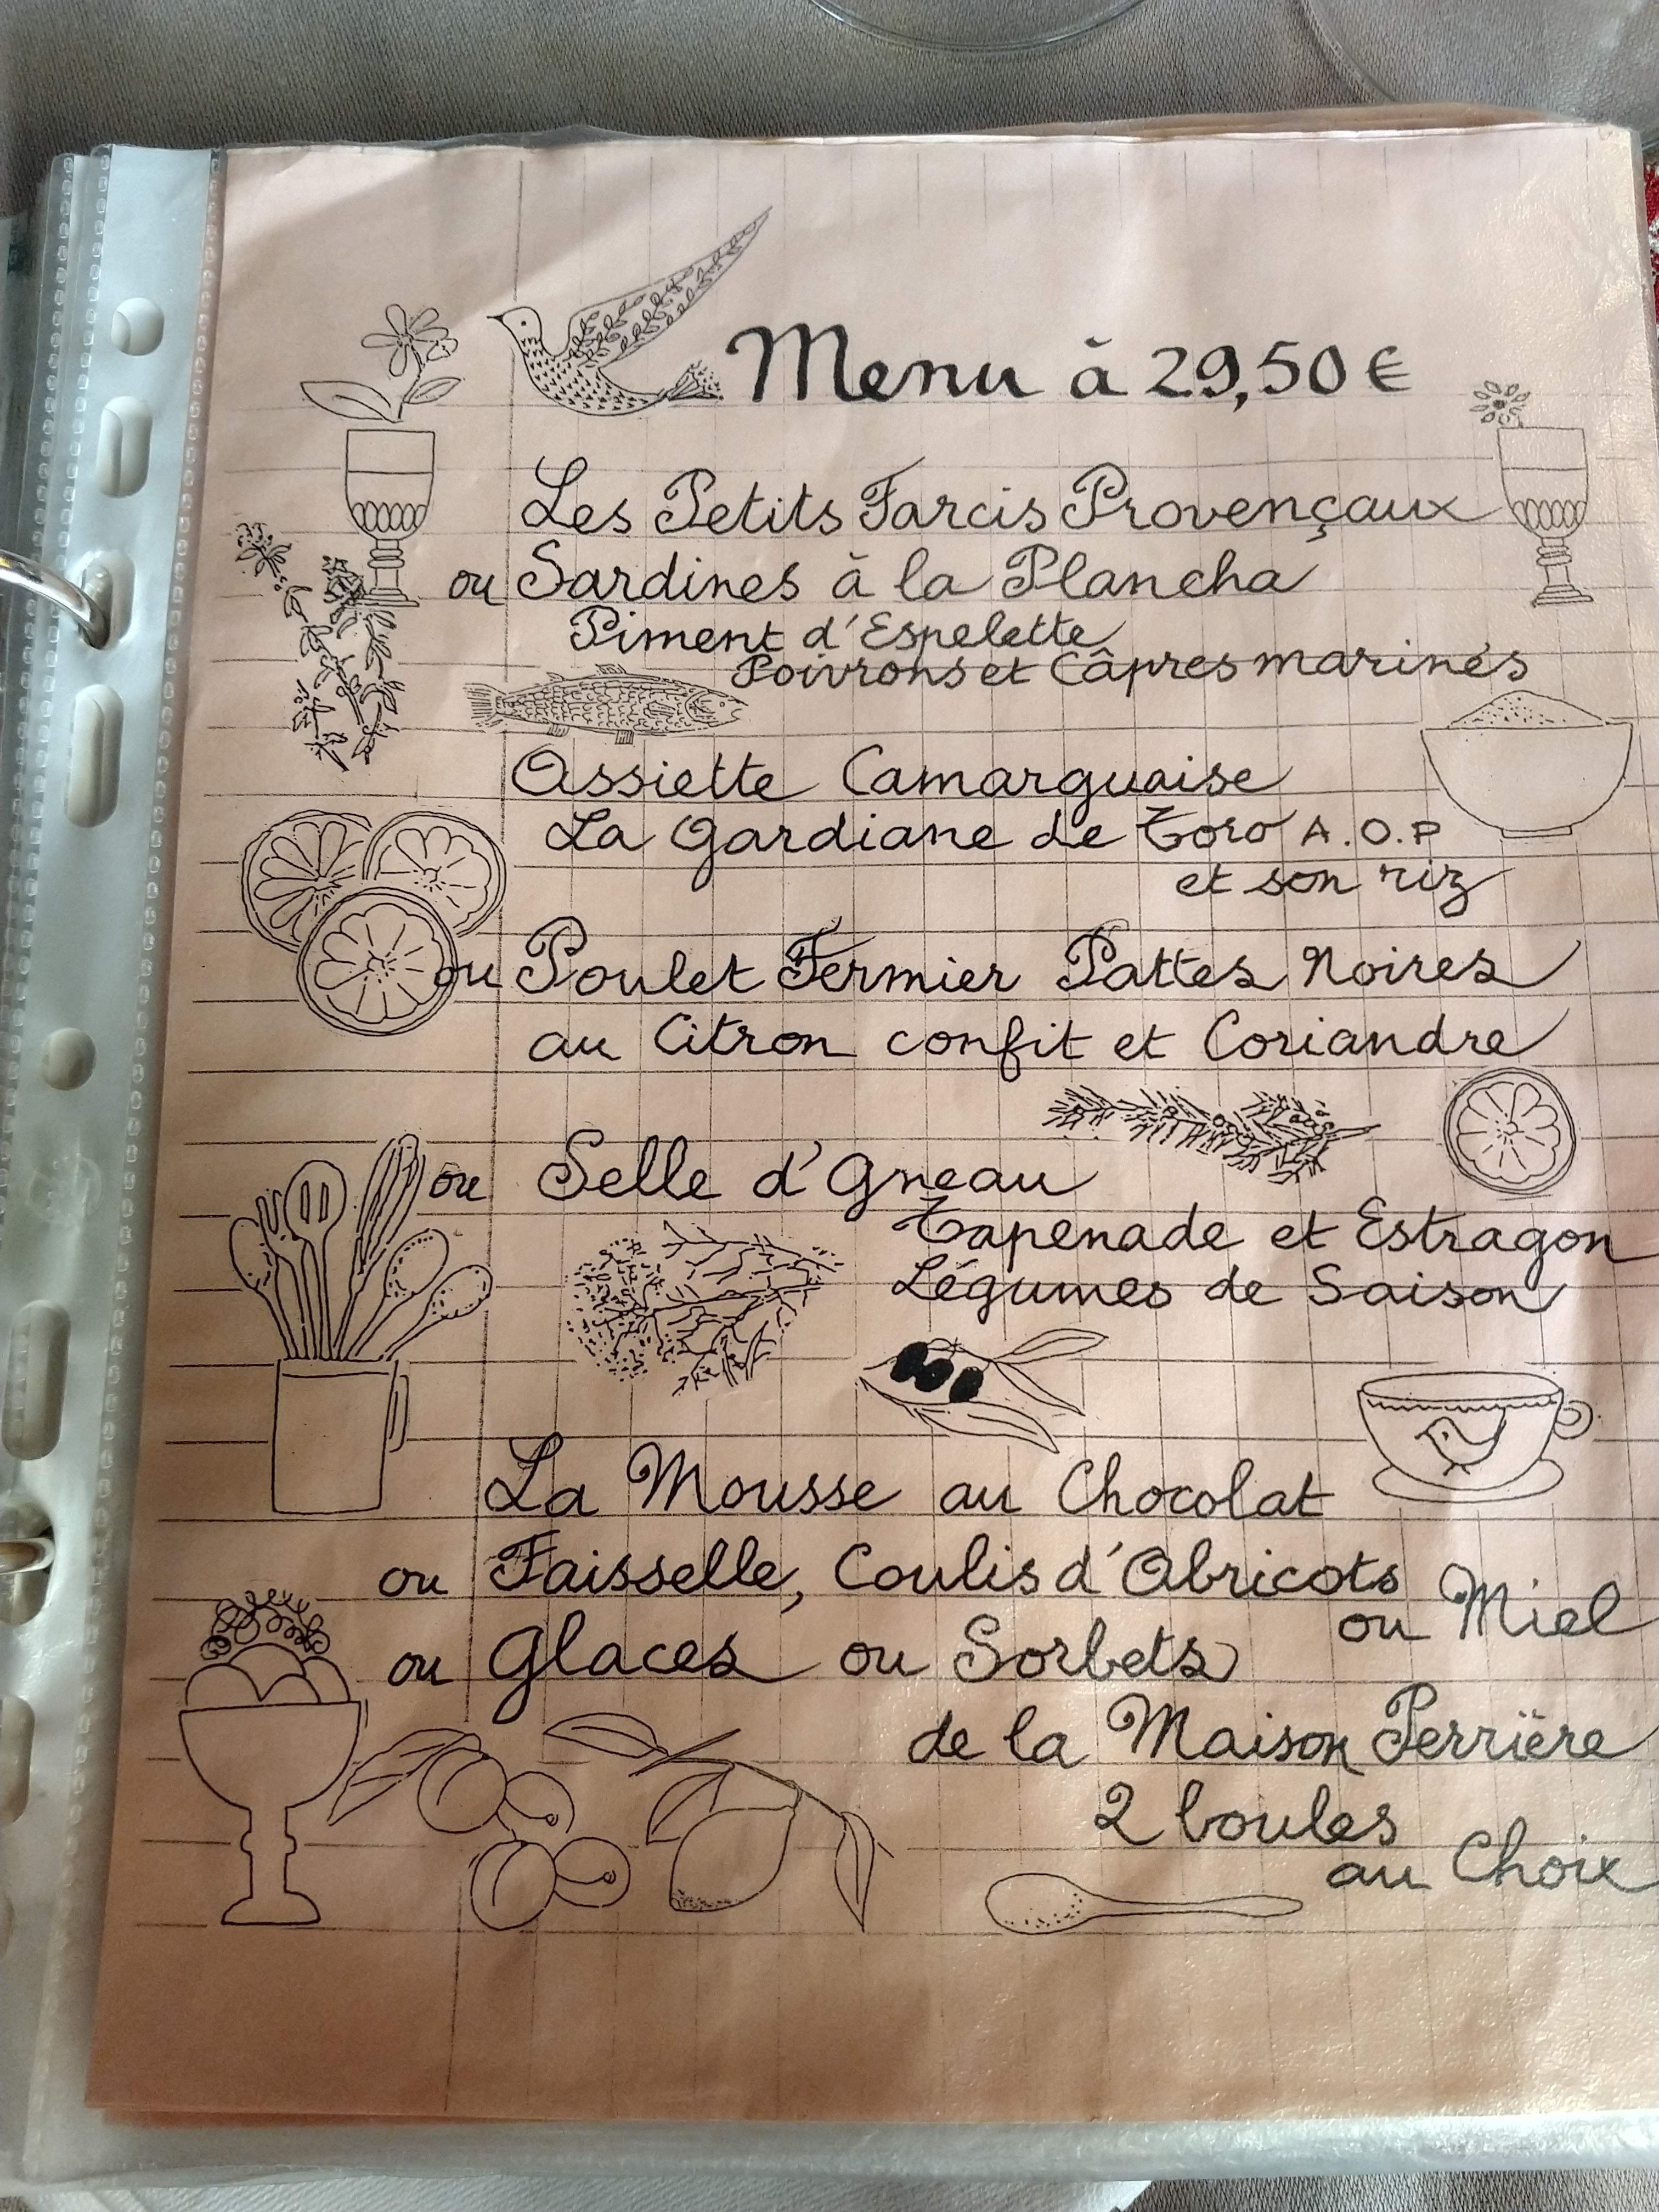 Menu à 29,50 €
Les Petits Farcis Provençaux
ou Sardines à la Plancha
Piment d'Espelette
Poivrons et Câpres marinés
Assiette Camarguaise
La Gardiane de Toro A.O.P
et son riz
ou Poulet Fermier Pattes Noires
au Citron confit et Coriandre
ou Selle d'Agneau
Tapenade et Estragon
Légumes de Saison
La Mousse au Chocolat
ou Faisselle, Coulis d'Abricots
ou Miel
ou Glaces ou Sorbets
de la Maison Perrière
2 boules
au Choix